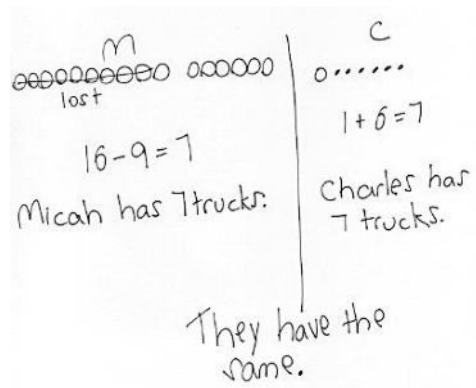 M
lost
16-9=7
Micah has 7 trucks.
C
1+6=7
Charles has
7 trucks.
They have the
same.